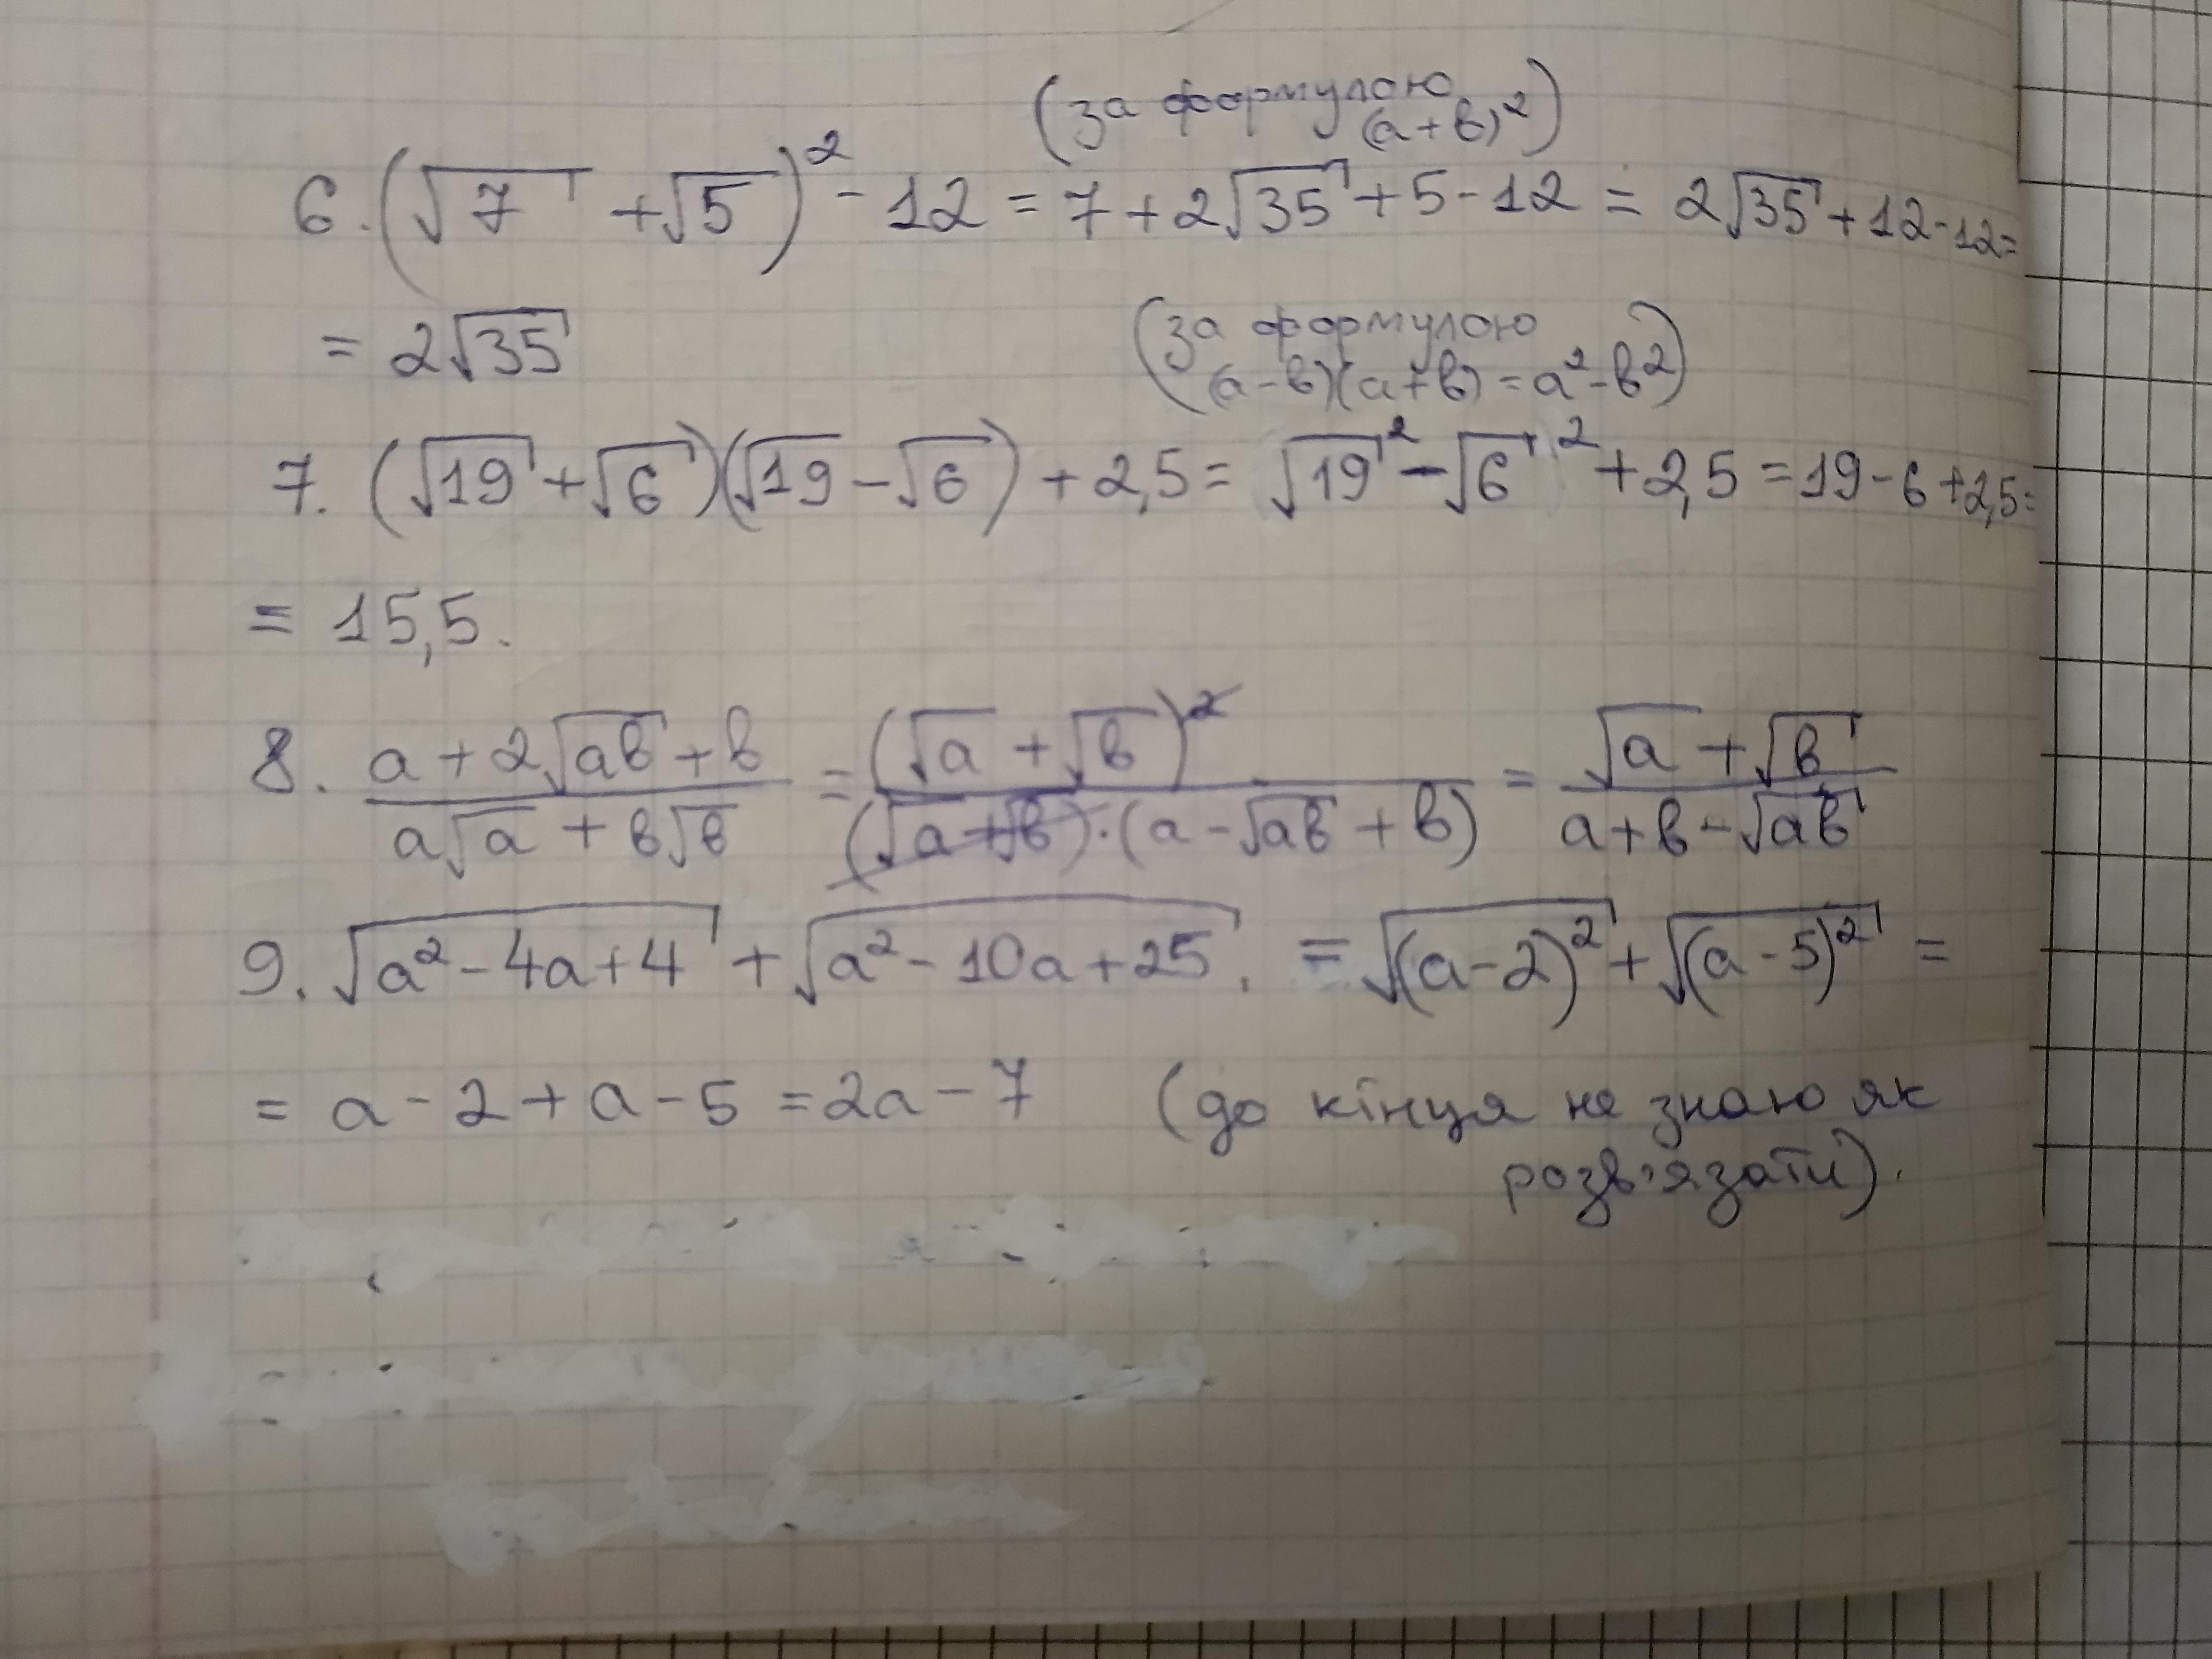 (за формулою
(a+b)²)
6. (√7 + √5)² - 12 = 7 + 2√35 + 5 - 12 = 2√35 + 12 - 12 =
= 2√35
(за формулою
(a-b)(a+b) = a² - b²)
7. (√19 + √6)(√19 - √6) + 2,5 = √19² - √6² + 2,5 = 19 - 6 + 2,5 =
= 15,5.
8. (a + 2√ab + b)/(a√a + b√b) = (√a + √b)²/((√a + √b)·(a - √ab + b)) = (√a + √b)/(a + b - √ab)
9. √(a² - 4a + 4) + √(a² - 10a + 25). = √((a-2)²) + √((a-5)²) =
= a - 2 + a - 5 = 2a - 7 (до кінця не знаю як
розв'язати).